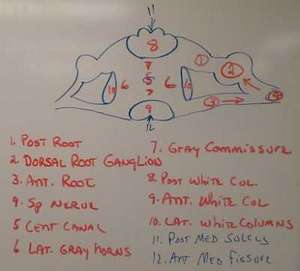 11
8
1
2
7
10 6 5 6 10
7
3
9
12
1. Post Root
2 Dorsal Root Ganglion
3. Ant. Root
4 Sp Nerve
5 Cent Canal
6 Lat. Gray Horns
7. Gray Commissure
8 Post White Col.
9. Ant. White Col
10. Lat. White Columns
11. Post Med Sulcus
12. Ant Med Fissure